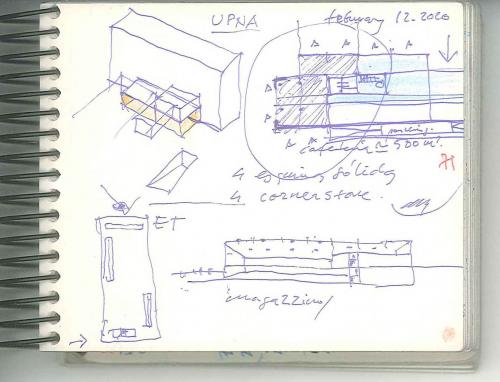 UPNA
february 12.2020
cafeteria ≈ 500 m².
4 esquinas sólidas
4 cornerstone.
ET
(magazzino)